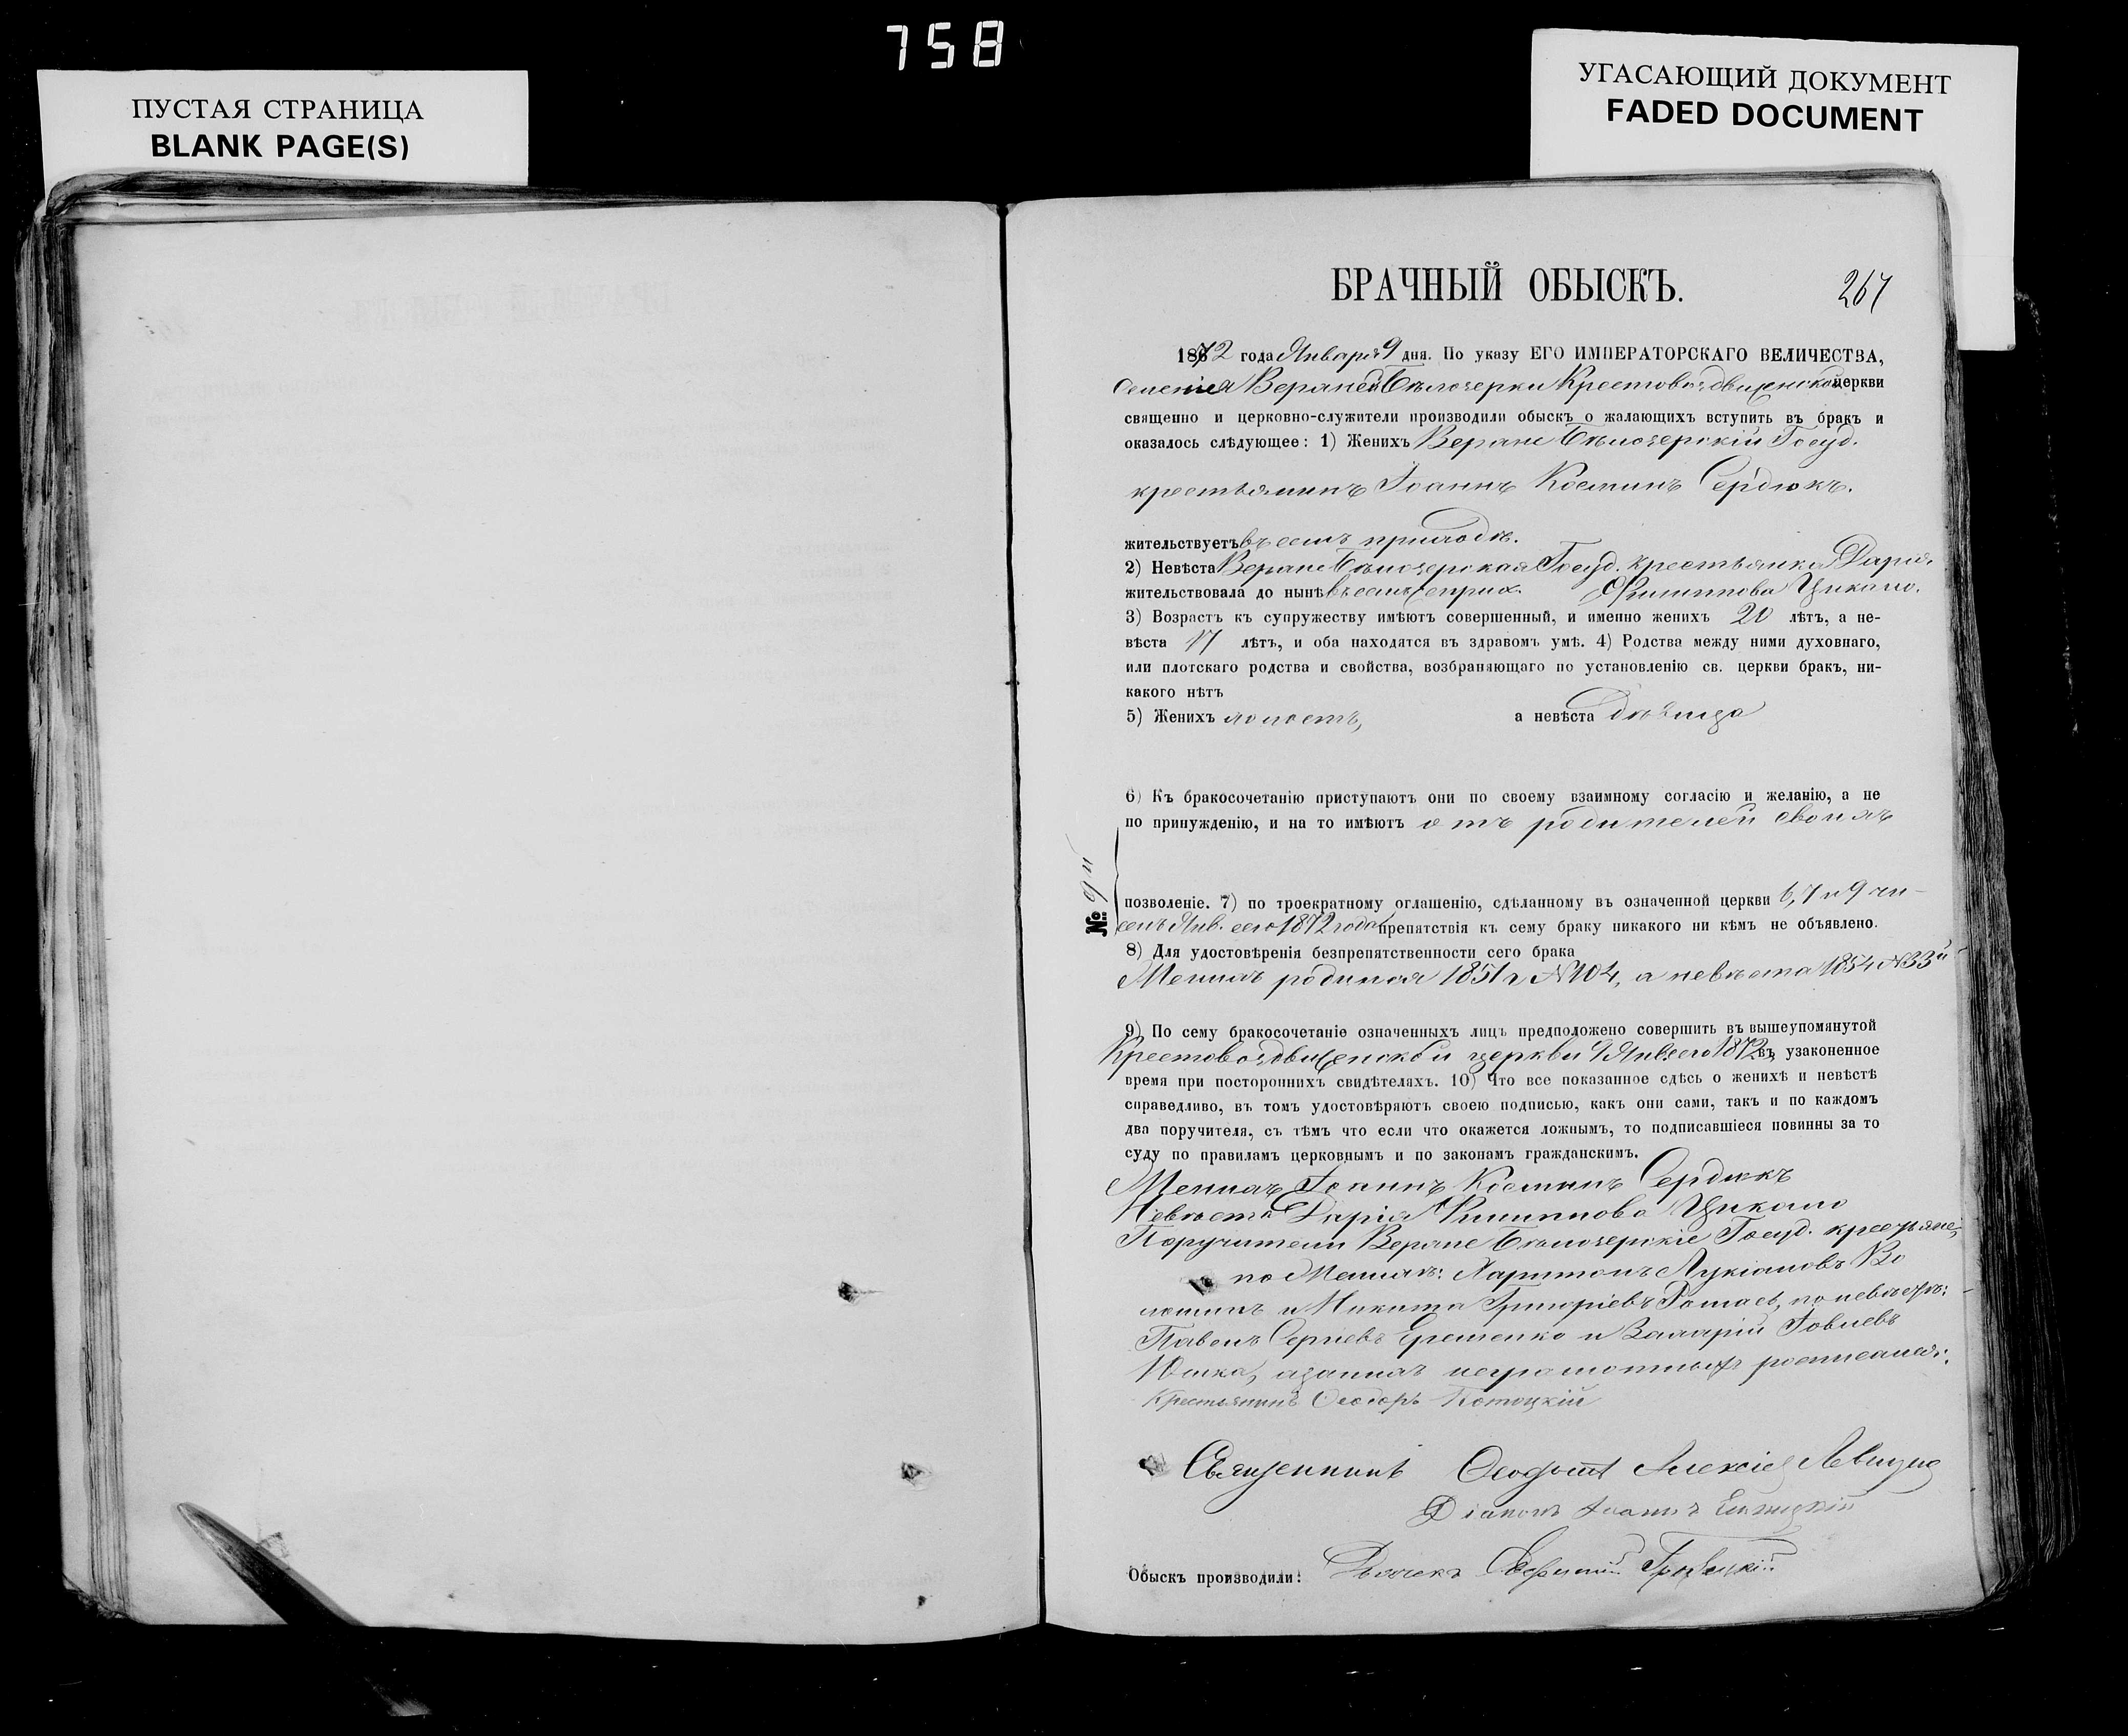 758
ПУСТАЯ СТРАНИЦА
BLANK PAGE(S)
УГАСАЮЩИЙ ДОКУМЕНТ
FADED DOCUMENT
БРАЧНЫЙ ОБЫСКЪ.
267
1872 года Января 9 дня. По указу ЕГО ИМПЕРАТОРСКАГО ВЕЛИЧЕСТВА,
Селенія Верхней Бѣлозерки Крестовоздвиженской церкви
священно и церковно-служители производили обыскъ о жалающихъ вступить въ бракъ и
оказалось слѣдующее: 1) Женихъ Верхне Бѣлозерскій Госуд.
крестьянинъ Іоаннъ Косминъ Сердюкъ.
жительствуетъ въ семъ приходѣ.
2) Невѣста Верхне Бѣлозерская Госуд. крестьянка Дарія
жительствовала до нынѣ въ семъ же прих. Филиппова Цикало.
3) Возрастъ къ супружеству имѣютъ совершенный, и именно женихъ 20 лѣтъ, а не-
вѣста 17 лѣтъ, и оба находятся въ здравомъ умѣ. 4) Родства между ними духовнаго,
или плотскаго родства и свойства, возбраняющаго по установленію св. церкви бракъ, ни-
какого нѣтъ
5) Женихъ холостъ, а невѣста дѣвица
6) Къ бракосочетанію приступаютъ они по своему взаимному согласію и желанію, а не
по принужденію, и на то имѣютъ отъ родителей своихъ
№ 9й
позволеніе. 7) по троекратному оглашенію, сдѣланному въ означенной церкви 6, 7 и 9 чи-
селъ Янв. сего 1872 года препятствія къ сему браку никакого ни кѣмъ не объявлено.
8) Для удостовѣренія безпрепятственности сего брака
Женихъ родился 1851 г №104, а невѣста 1854 №33й
9) По сему бракосочетаніе означенныхъ лицъ предположено совершить въ вышеупомянутой
Крестовоздвиженской церкви 9 Янв. сего 1872 г. въ узаконенное
время при постороннихъ свидѣтеляхъ. 10) Что все показанное сдѣсь о женихѣ и невѣстѣ
справедливо, въ томъ удостовѣряютъ своею подписью, какъ они сами, такъ и по каждомъ
два поручителя, съ тѣмъ что если что окажется ложнымъ, то подписавшіеся повинны за то
суду по правиламъ церковнымъ и по законамъ гражданскимъ.
Женихъ Іоаннъ Косминъ Сердюкъ
Невѣста Дарія Филиппова Цикало
Поручители Верхне Бѣлозерскіе Госуд. крестьяне,
по Женихѣ: Харитонъ Лукіановъ Во
лошинъ и Никита Григоріевъ по невѣстѣ:
Павелъ Сергіевъ Ерешенко и Захарій Іовлевъ
Юшка, а за нихъ неграмотныхъ росписался:
Крестьянинъ Ѳеодоръ Котоцкій
Священникъ Ѳеодотъ Алексіев Левицкій
Діаконъ Іоаннъ
Обыскъ производили: Дьячекъ